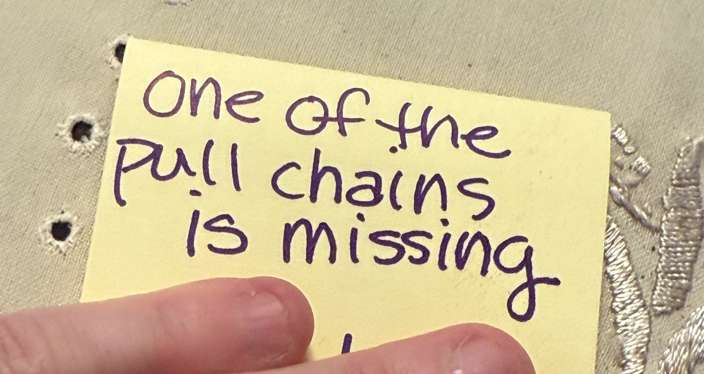 One of the
pull chains
is missing